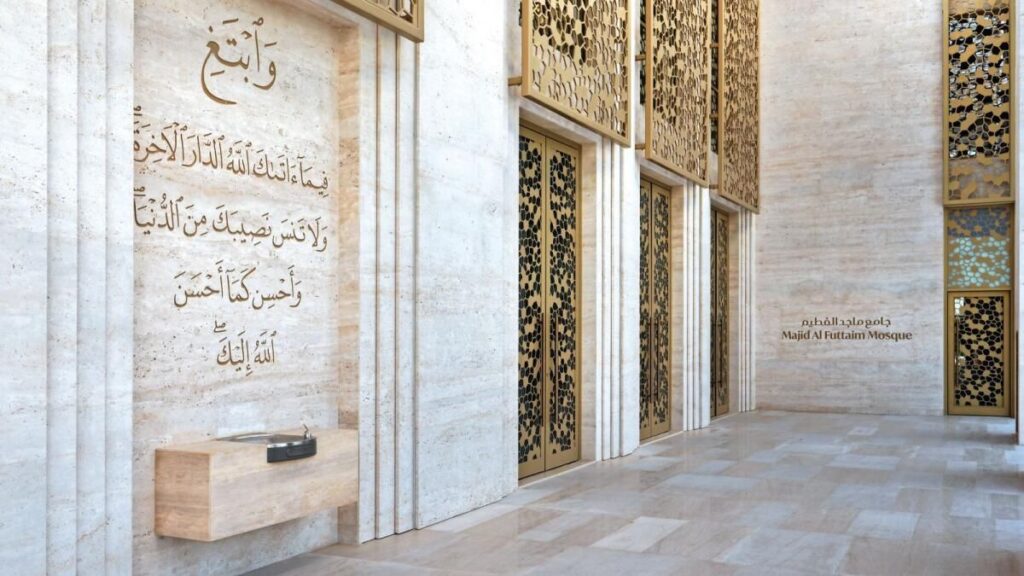 وَٱبۡتَغِ
فِيمَآ ءَاتَىٰكَ ٱللَّهُ ٱلدَّارَ ٱلۡأٓخِرَةَۖ
وَلَا تَنسَ نَصِيبَكَ مِنَ ٱلدُّنۡيَاۖ
وَأَحۡسِن كَمَآ أَحۡسَنَ
ٱللَّهُ إِلَيۡكَۖ
جامع ماجد الفطيم
Majid Al Futtaim Mosque